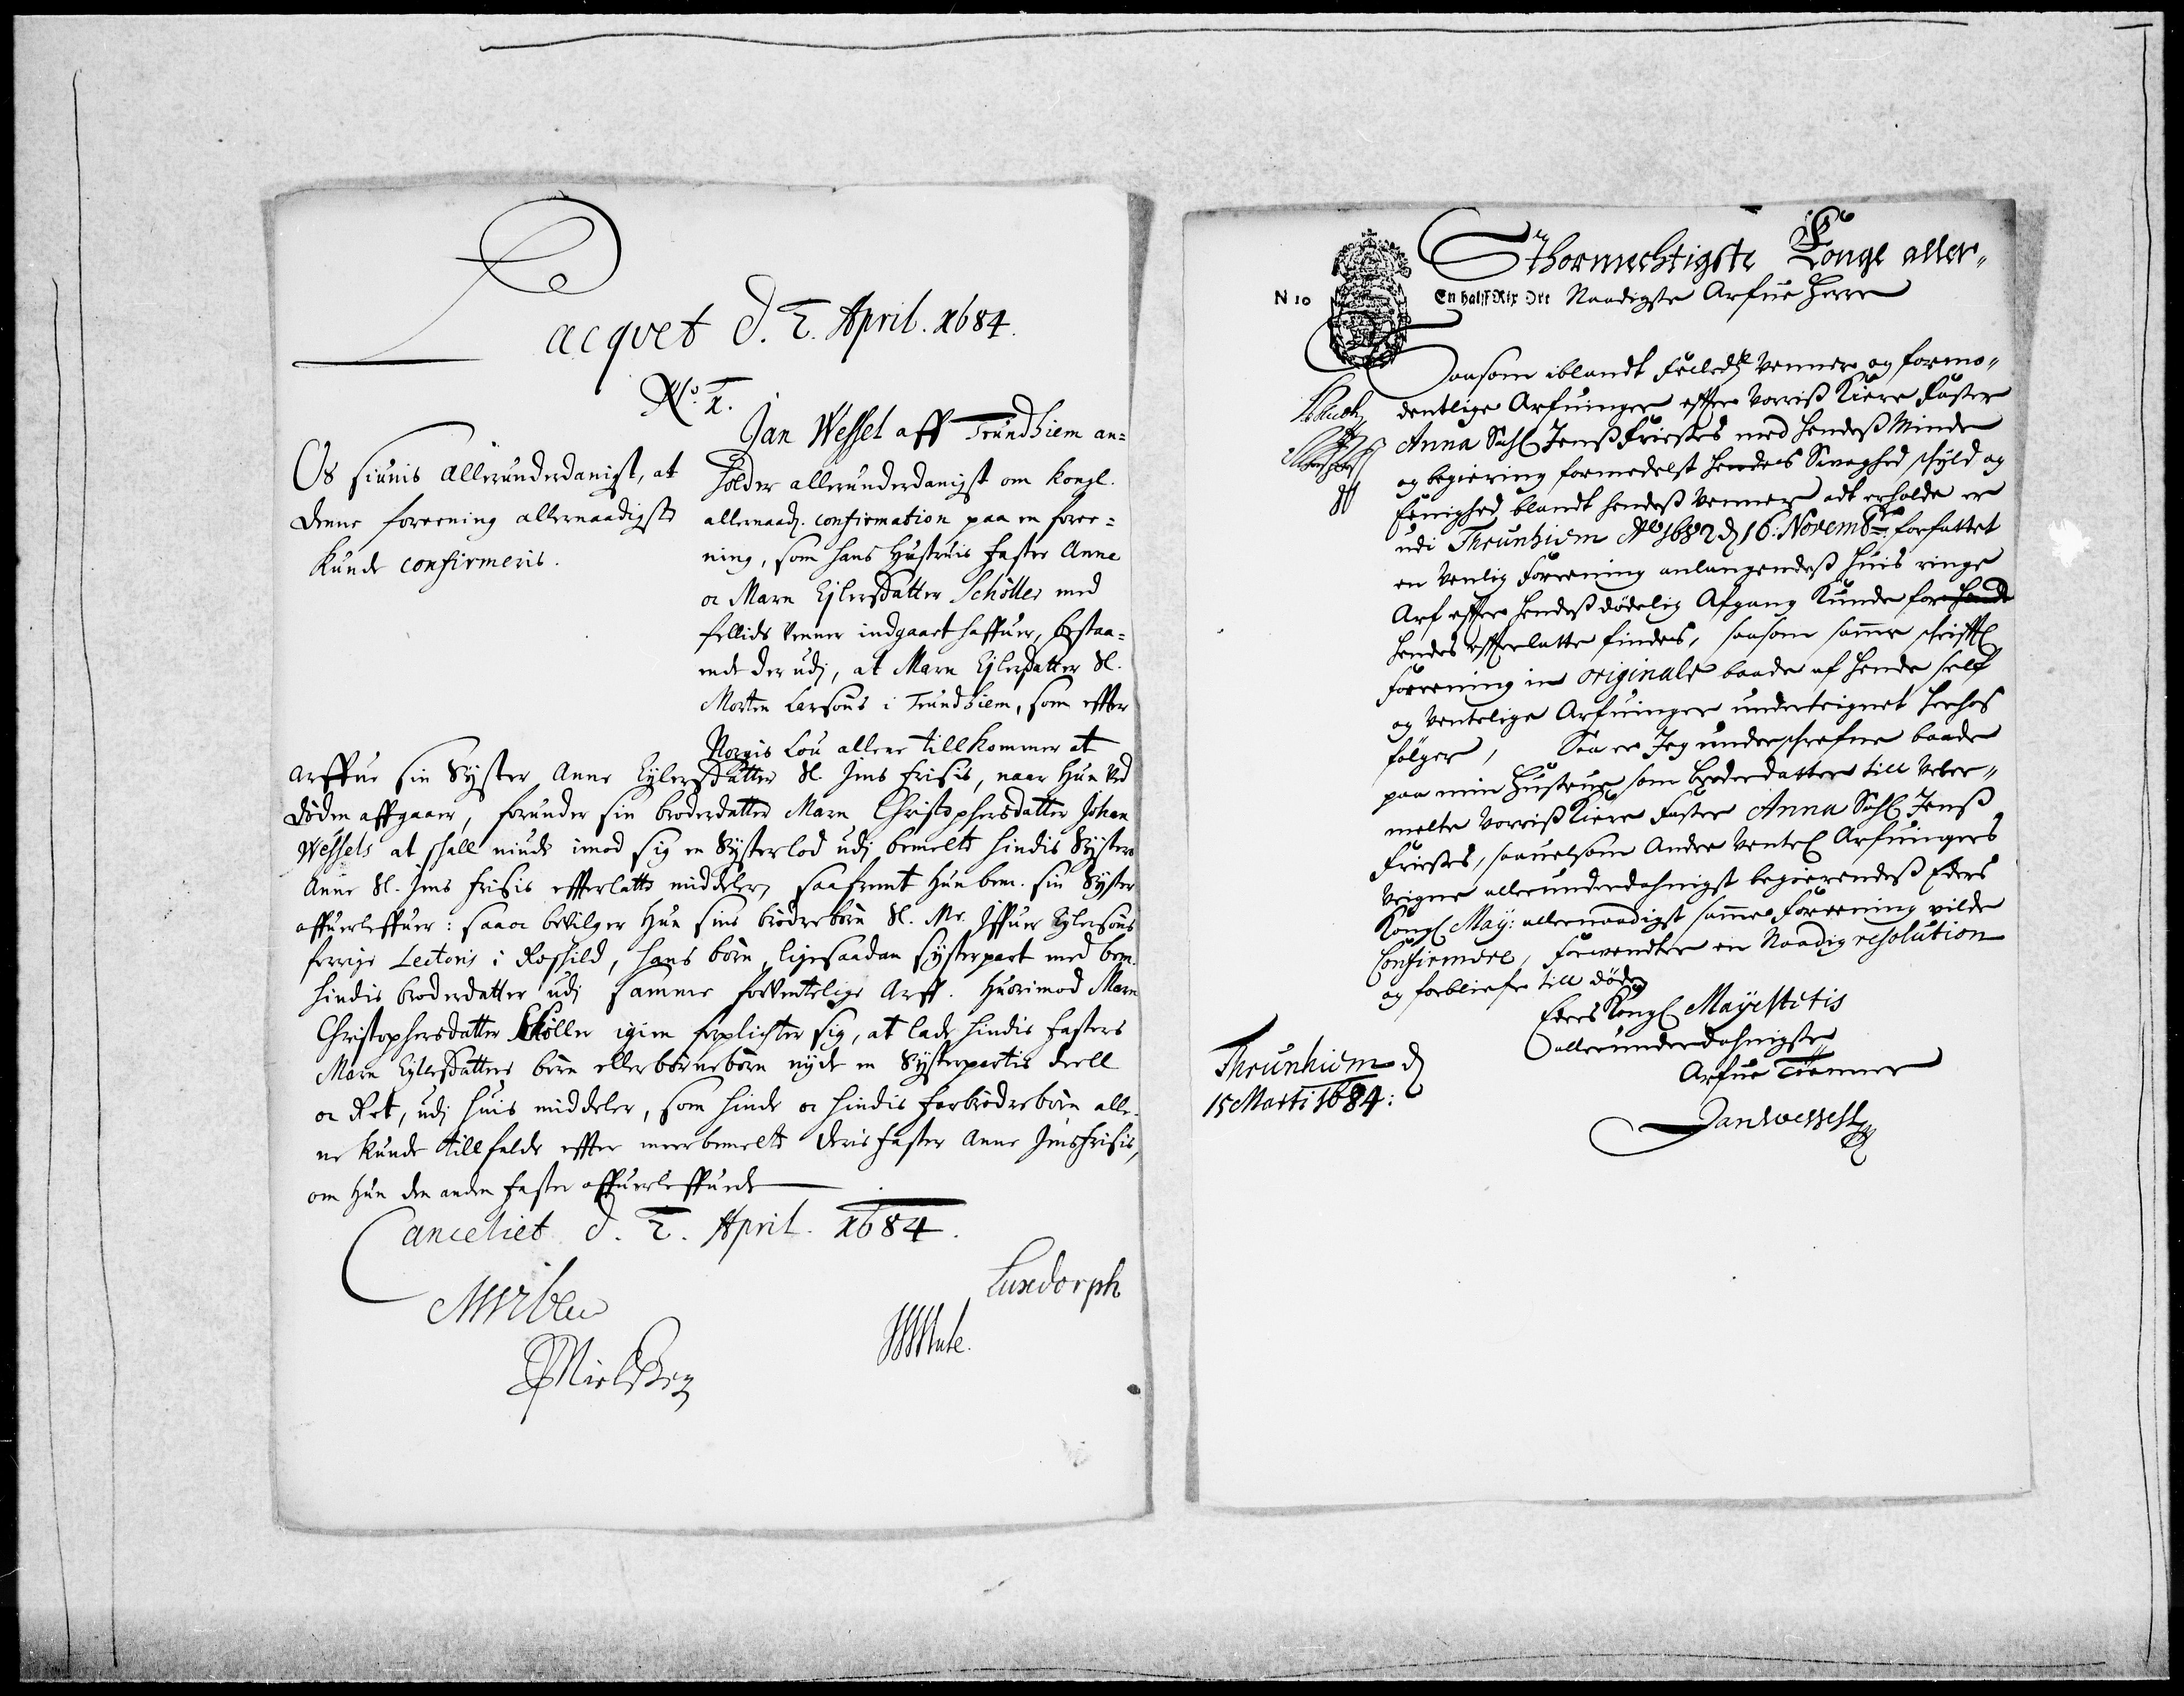 Pacqvet d. 2. April. 1684.
No. 1.
Os siunis allerunderdanigst, at
denne foreening allernaadigst
kunde confirmeris.
Jan Wessel aff Trundhiem an=
holder allerunderdanigst om kongl.
allernaad. confirmation paa en foree=
ning, som hans Hustruis Faster Anne
oc Marn Eylersdatter Schøller med
fellids venner indgaaet haffuer, bestaa=
ende der udj, at Marn Eylersdatter Sl.
Morten Larsøns i Trundhiem, som effter
Norgis Lou allene tillkommer at
arffue sin Syster Anne Eylersdatter Sl. Jens Frisis, naar Hun ved
døden affgaaer, forunder sin broderdatter Marn Christophersdatter Johan
Wessels at skall niude imod sig en Systerlod udj bemelte hindis Systers
Anne Sl. Jens Frisis effterlatte middeler, saafremt hun bem. sin Syster
offuerleffuer: saa oc bevilger Hun sine broderbørn Sl. Mr. Iffuer Eylersøns
forrige Lectoris i Roskild, hans børn, ligesaadan systerpart med bem.
hindis broderdatter udj samme forventelige Arff. Huorimod Marn
Christophersdatter Skøller igien forplichter sig, at lade hindis Fasters
Marn Eylersdatters børn eller børnebørn nyde en Systerpartis deell
oc Ret, udj huis middeler, som hinde oc hindis farbroderbørn alle=
ne kunde tillfalde effter meerbemelte deris Faster Anne Jens Frisis,
om Hun den anden Faster offuerleffuede
Canceliet d. 2. April. 1684.
Luxdorph
N 10
En halff Rix Ort
Sthormechtigste Konge aller=
Naadigste Arfue Herre
Saasom iblandt Fellidtz venner og formo=
dentlige Arfuinger effter vorriss Kiere Faster
Anna Sahl Jenss Frieses med hendess Minde
og begiering formedelst hendes Svaghed skyld og
Eenighed blandt hendess venner att erholde er
udi Thrunhiem Ao 1682 d 16. Novembr: forfattet
en venlig Foreening anlangendess huis ringe
Arf effter hendess dødelig Afgang kunde for hende
hendes effterlatte findes, saasom samme skrifftl
Foreening in originale baade af hende self
og ventelige Arfuinger underteignet herhos
følger, Saa er Jeg underskrefne baade
paa min Hustrues som broderdatter till veber=
melte vorriss Kiere Faster Anna Sahl Jenss
Frieses, saauelsom Andre ventel Arfuingers
veigne allerunderdahnigst begierendess Eders
Kongl May: allernaadigst samme Foreening vilde
Confirmere, Forventter en Naadig resolution
og forblifer till døden
Eders Kongl Mayesttis
allerunderdahnigste
Arfue Tienner
Jan Wessell
Thrunhiem d
15 Marti 1684: